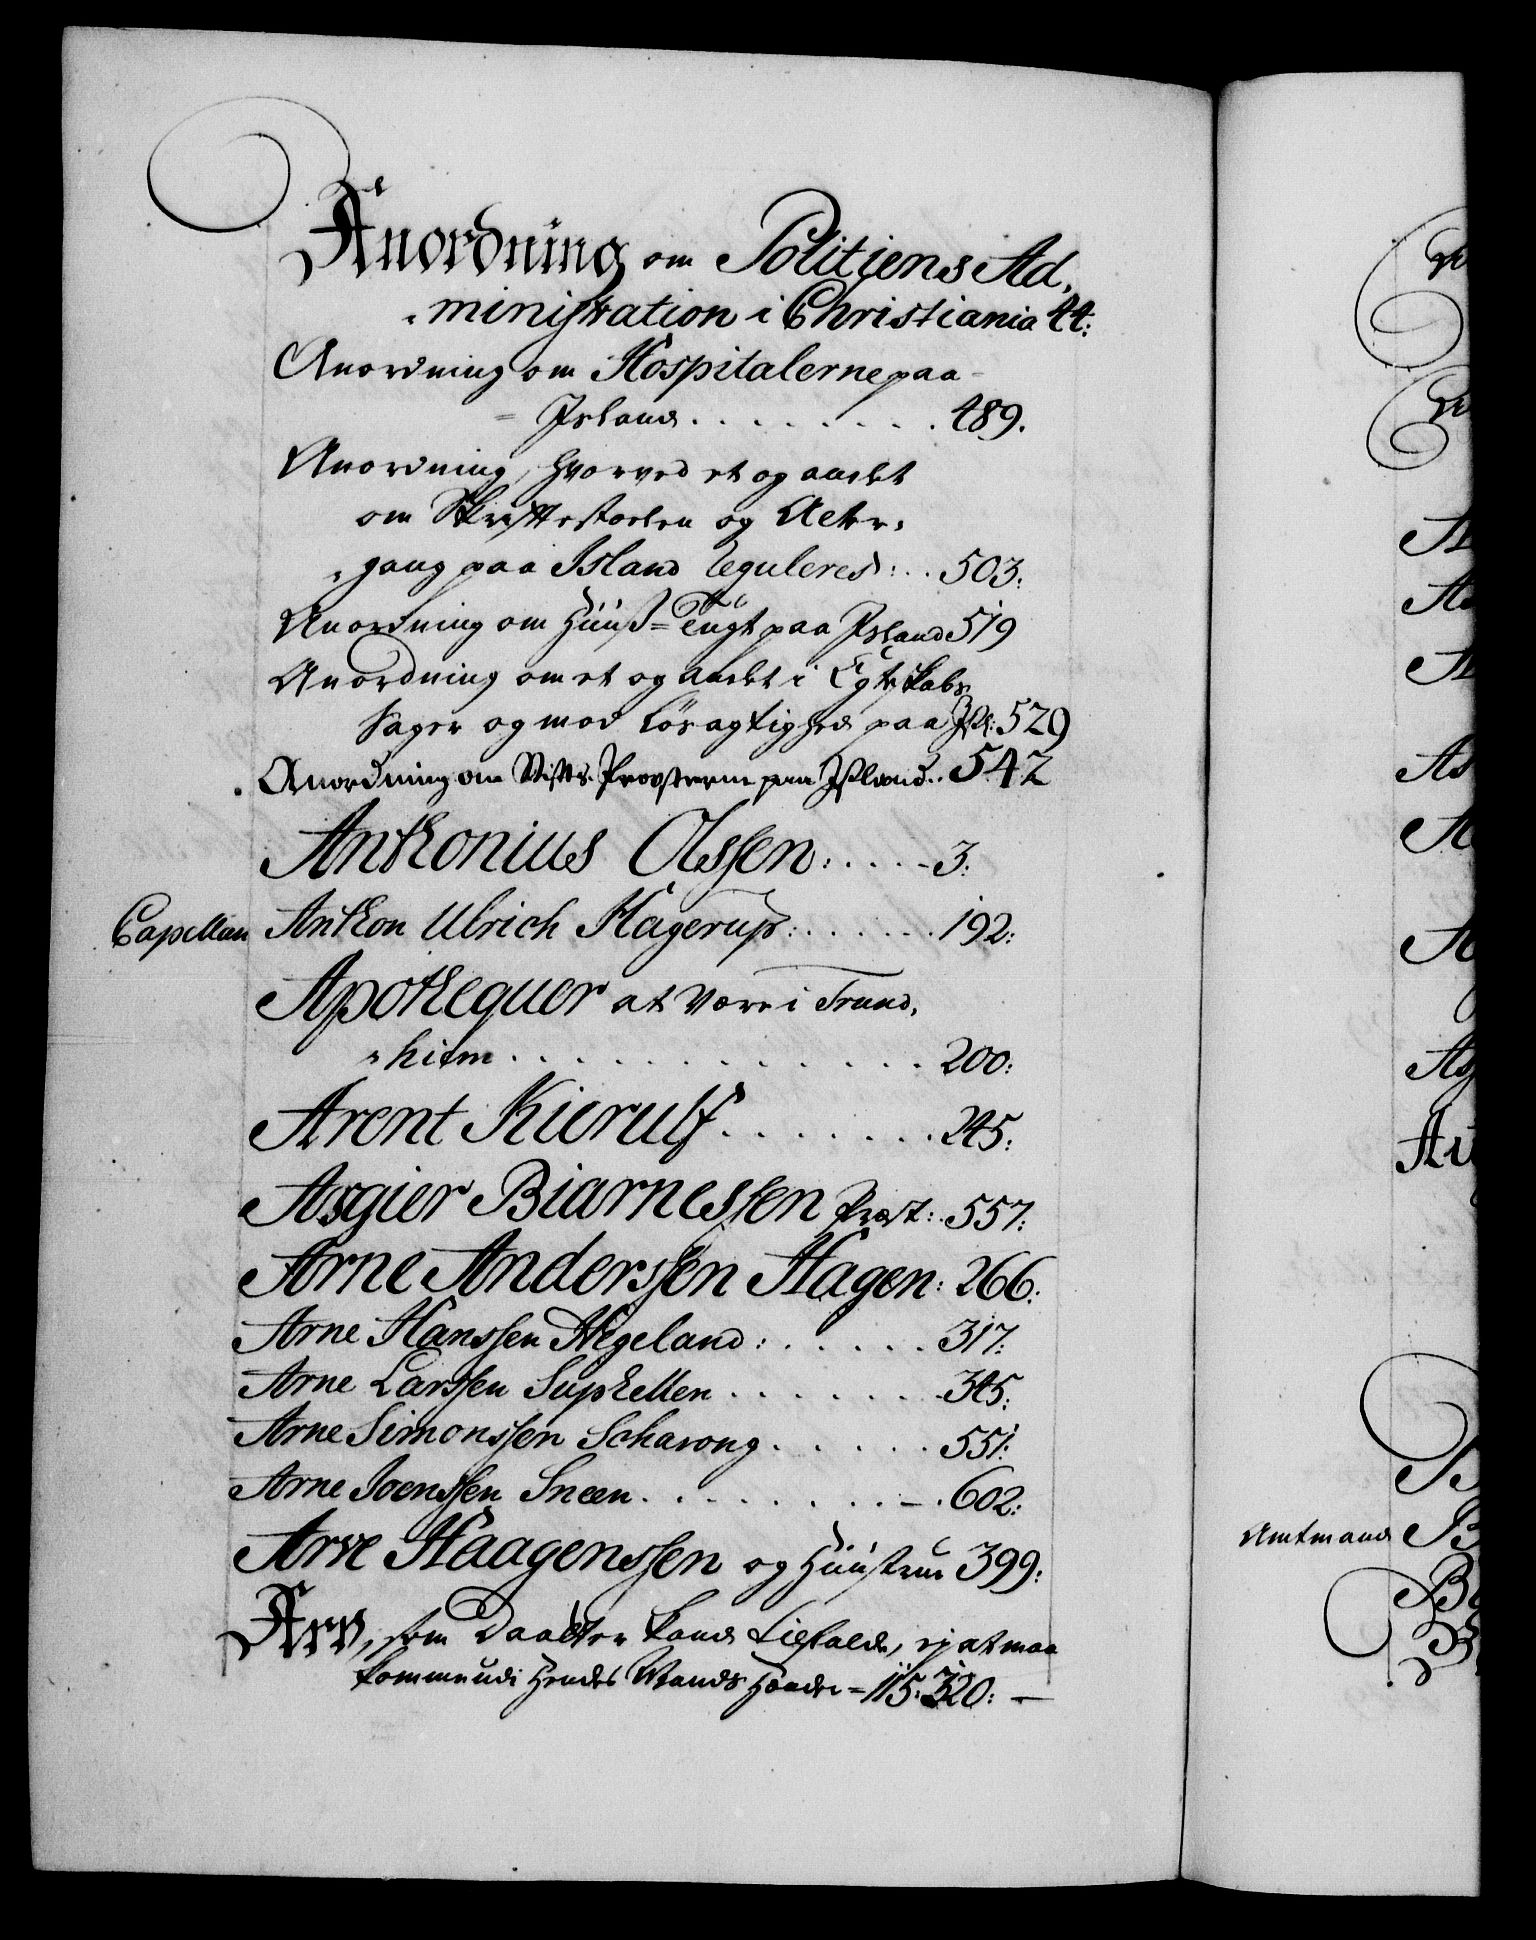 Anordning om Politiens Ad,
„ministration i Christiania 44:
Anordning om Hospitalerne paa
= Island . . . . . . . . 489.
Anordning, hvorved et og andet
om Skriftestoelen og Alter,
„gang paa Island reguleres: . . 503:
Anordning om Huus=Tugt paa Island 519
Anordning om et og andet i Egteskabs
Sager og mod Løsagtighed paa Isl: 529
Anordning om Provsterne paa Island . . 542
Anthonius Olssen: . . . . - 3:
Capellan Anthon Ulrich Hagerup: . . . . . . 192:
Apothequer at være i Trund,
„hiem . . . . . . . . . . . . . 200:
Arent Kierulf . . . . . . . . 245:
Asgier Biarnessen Præst: . 557:
Arne Anderssen Hagen: 266:
Arne Hanssen Hegeland: . . . . . . 317:
Arne Larssen Suphellen . . . . . . . . 345:
Arne Simonssen Scharong . . . . . . 551:
Arne Joenssen Sneen . . . . . . . . - . 602:
Arve Haagenssen og Huustrue 399:
Arv, som Daatter kand tilfalde, ej at maa
komme udi hendes Mands Hænder = 115. 320: —
Amtmand